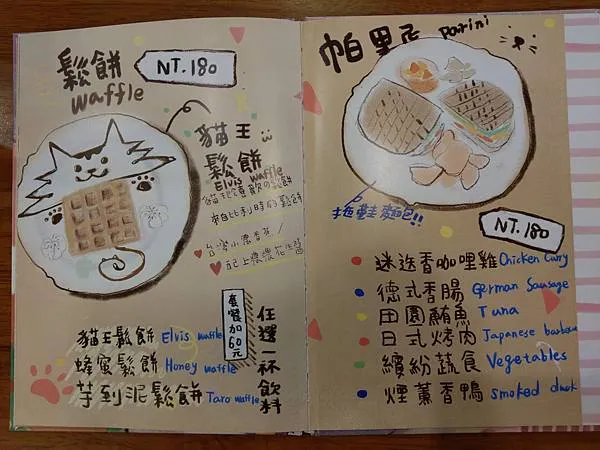 鬆餅
waffle
NT.180
貓王
鬆餅
Elvis waffle
來自比利時的鬆餅
台灣小農香蕉/
套餐加60元
任選一杯飲料
貓王鬆餅 Elvis waffle
蜂蜜鬆餅 Honey waffle
芋到泥鬆餅 Taro waffle
帕里尼 parini
拖鞋麵包!!
NT.180
迷迭香咖哩雞 Chicken Curry
德式香腸 German Sausage
田園鮪魚 Tuna
日式烤肉 Japanese barbecue
繽紛蔬食 Vegetables
煙薰香鴨 smoked duck